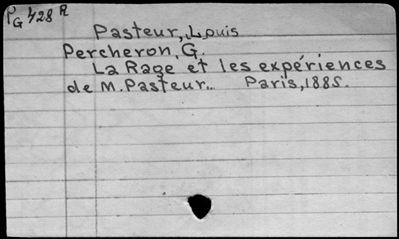 PG 428 R
Pasteur, Louis
Percheron, G.
La Rage et les expériences
de M. Pasteur.. Paris, 1885.